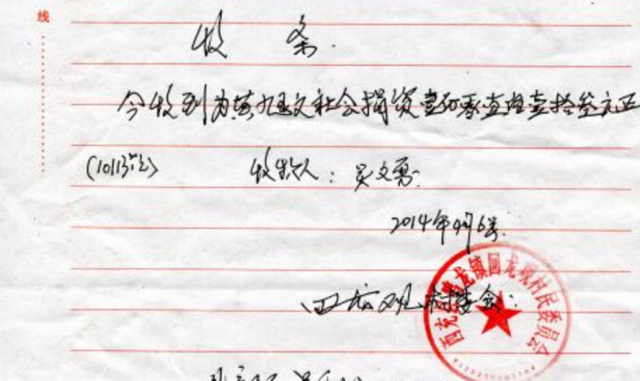 线
收条
今收到为黄 文社会捐资壹万零壹佰壹拾叁元正
(10113元) 收款人:吴文勇
2014年9月6号
回龙观村委会:
西充 龙镇回龙观村民委员会